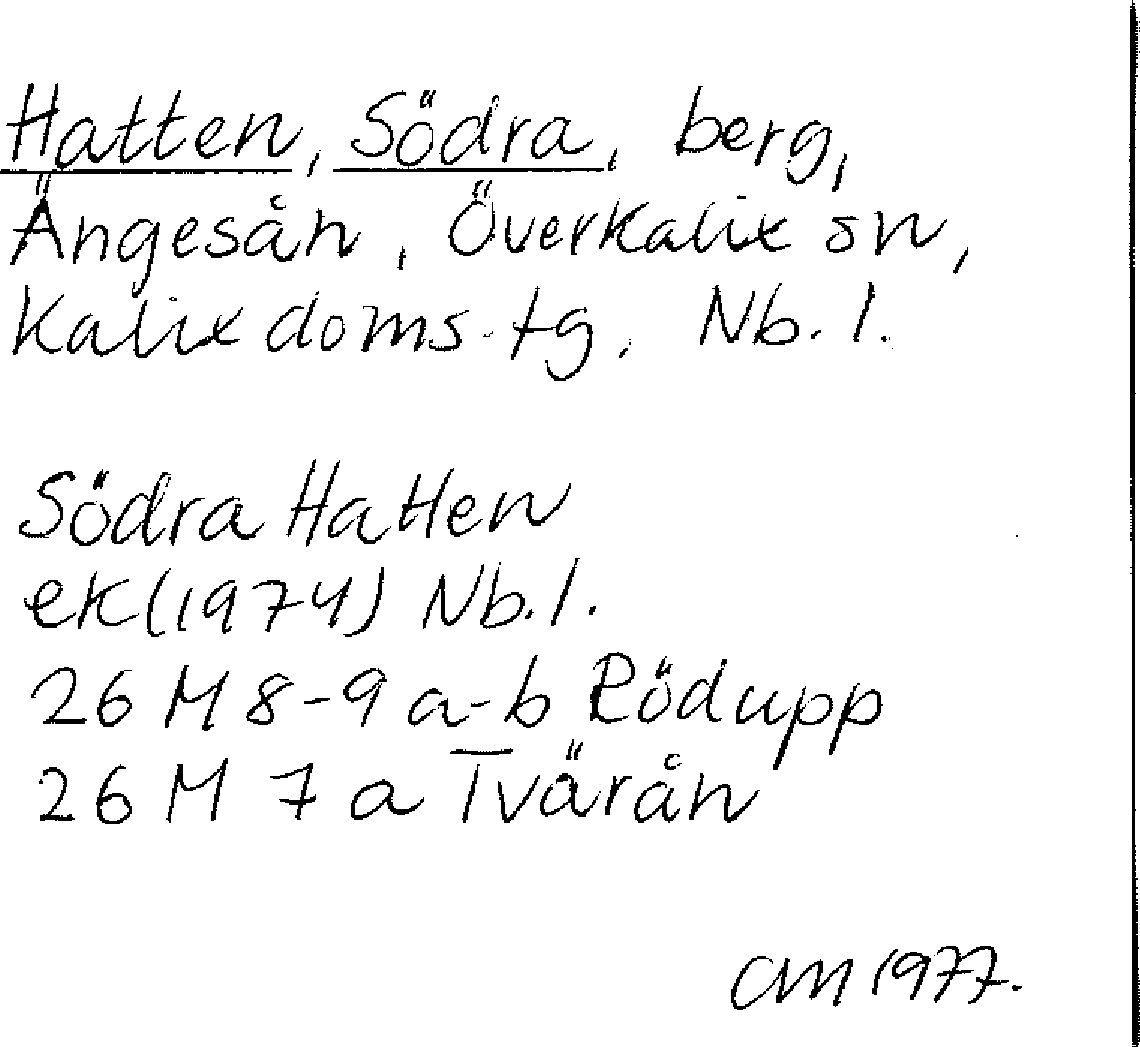 Hatten, Södra, berg,
Ängesån, Överkalix sn,
Kalix doms. tg, Nb. l.
Södra Hatten
ek (1974) Nb. l.
26 M 8-9 a-b Rödupp
26 M 7 a Tvärån
CM 1977.